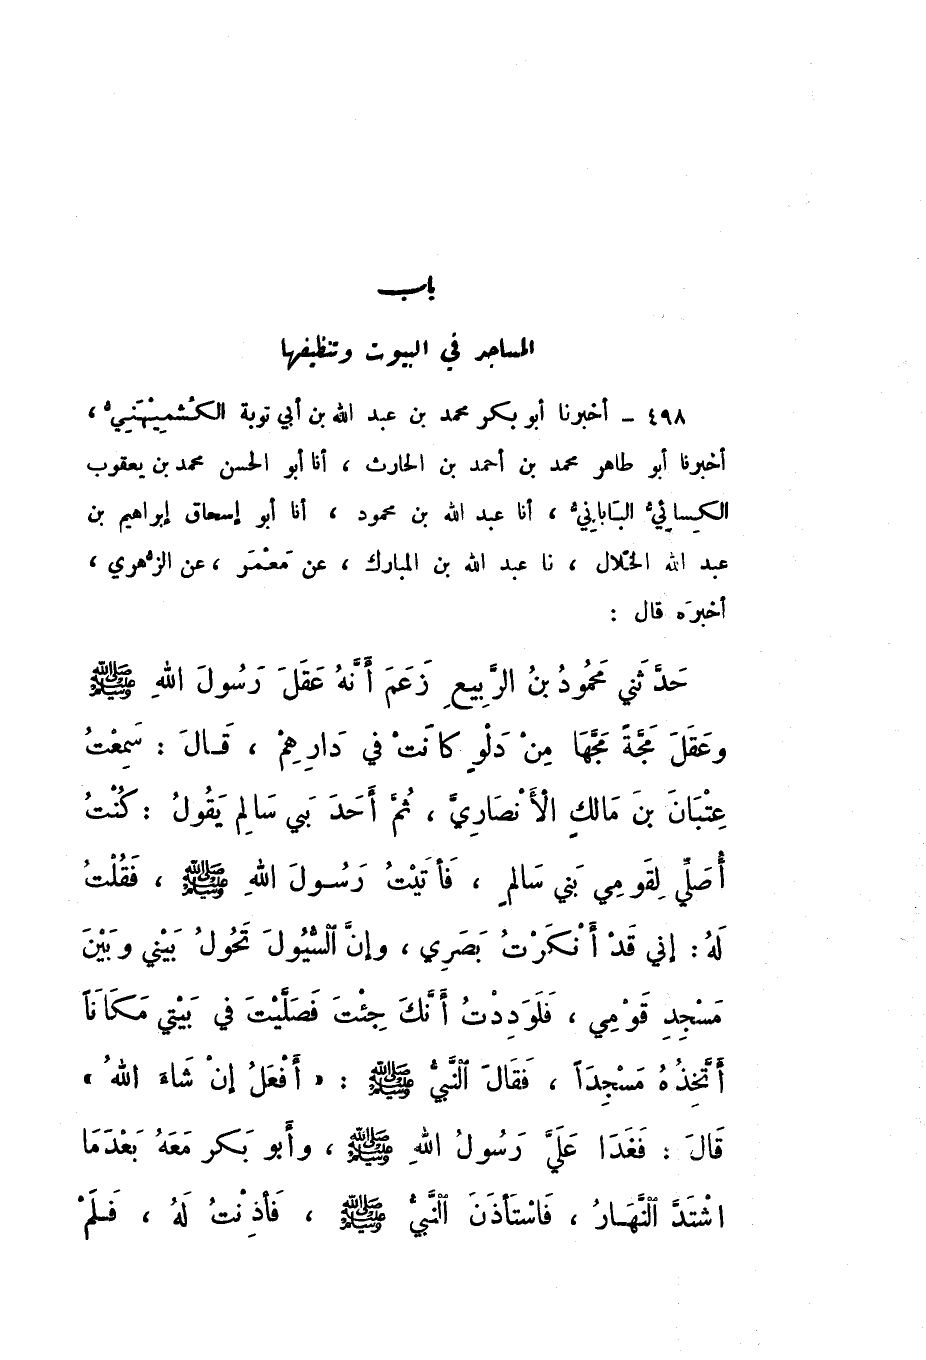 باب
المساجد في البيوت وتنظيفها
٤٩٨ - أخبرنا أبو بكر محمد بن عبد الله بن أبي توبة الكُشمِيْهَنِيُّ ،
أخبرنا أبو طاهر محمد بن أحمد بن الحارث ، أنا أبو الحسن محمد بن يعقوب
الكِسائيُّ البَابانِيُّ ، أنا عبد الله بن محمود ، أنا أبو إسحاق إبراهيم بن
عبد الله الخلّال ، نا عبد الله بن المبارك ، عن مَعْمَر ، عن الزُّهري ،
أخبرَه قال :
حَدَّثَني مَحمُودُ بنُ الرَّبِيعِ زَعَمَ أَنَّهُ عَقَلَ رَسُولَ اللهِ ﷺ
وعَقَلَ مَجَّةً مَجَّهَا مِنْ دَلْوٍ كانَتْ في دَارِهِمْ ، قَـالَ : سَمِعْتُ
عِتْبَانَ بنَ مَالكٍ الْأَنْصَارِيَّ ، ثُمَّ أَحَدَ بَنِي سَالِمٍ يَقُولُ : كُنْتُ
أُصَلِّي لِقَومِي بَنِي سَالمٍ ، فَأَتَيْتُ رَسُـولَ اللهِ ﷺ ، فَقُلْتُ
لَهُ : إني قَدْ أَنْكَرْتُ بَصَرِي ، وإنَّ السُّيُولَ تَحُولُ بَيْنِي وبَيْنَ
مَسْجِدِ قَوْمِي ، فَلَوَدِدْتُ أَنَّكَ جِئْتَ فَصَلَّيْتَ في بَيْتِي مَكَانَاً
أَتَّخِذُهُ مَسْجِدَاً ، فَقَالَ النَّبيُّ ﷺ : « أَفْعَلُ إنْ شَاءَ اللهُ »
قَالَ : فَغَدَا عَلَيَّ رَسُولُ اللهِ ﷺ ، وأَبو بَكر مَعَهُ بَعْدَمَا
اشْتَدَّ النَّهَـارُ ، فَاسْتَأذَنَ النَّبيُّ ﷺ ، فَأذِنْتُ لَهُ ، فَـلَمْ